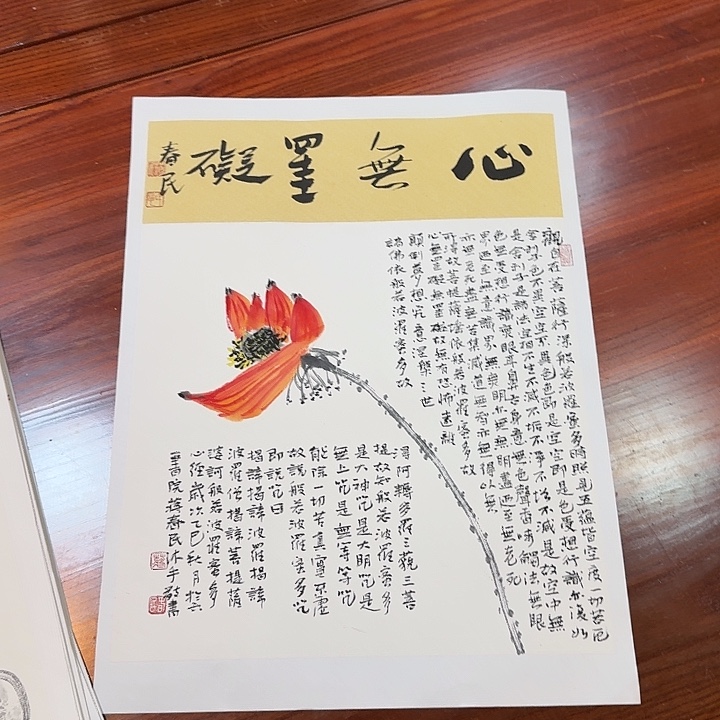 心無罣礙
春民
觀自在菩薩行深般若波羅蜜多時照見五蘊皆空度一切苦厄
舍利子色不異空空不異色色即是空空即是色受想行識亦復如
是舍利子是諸法空相不生不滅不垢不淨不增不減是故空中無
色無受想行識無眼耳鼻舌身意無色聲香味觸法無眼
界乃至無意識界無無明亦無無明盡迺至無老死
亦無老死盡無苦集滅道無智亦無得以無
所得故菩提薩埵依般若波羅蜜多故
心無罣礙無罣礙故無有恐怖遠離
顛倒夢想究竟涅槃三世
諸佛依般若波羅蜜多故
得阿耨多羅三藐三菩
提故知般若波羅蜜多
是大神咒是大明咒是
無上咒是無等等咒
能除一切苦真實不虛
故說般若波羅蜜多咒
即說咒曰
揭諦揭諦波羅揭諦
波羅僧揭諦菩提薩
婆訶般若波羅蜜多
心經歲次乙巳秋月於六
書院蔣春民沐手敬書